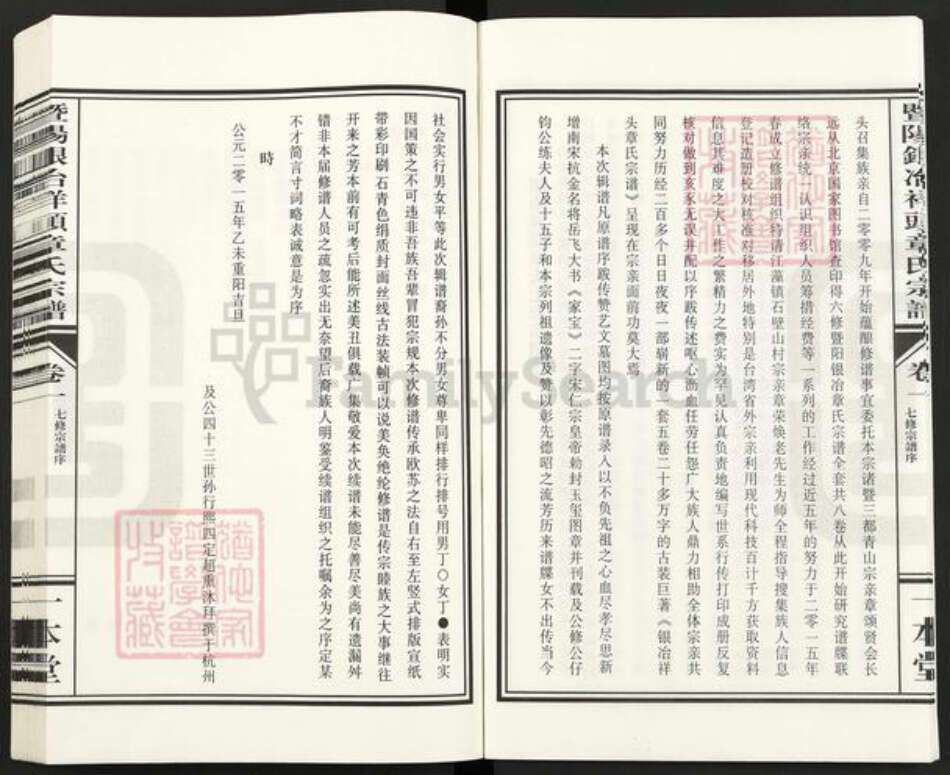 暨陽銀冶祥頭章氏宗譜
卷一
七修宗譜序
一本堂
头召集族亲自二零零九年开始蕴酿修谱事宜委托本宗诸暨三都青山宗亲章颂贤会长
远从北京国家图书馆查印得六修暨阳银冶章氏宗谱全套共八卷从此开始研究谱牒联
络宗亲统一认识组织人员筹措经费等一系列的工作经过近五年的努力于二零一五年
春成立修谱组织特请江藻镇石壁山村宗亲章荣焕老先生为师全程指导搜集族人信息
登记造册校对核准对移居外地特别是台湾省外宗亲利用现代科技百计千方获取资料
信息其难度之大工作之繁精力之费实为罕见认真负责地编写世系行传打印成册反复
核对做到亥豕无误并配以序跋传述呕心沥血任劳任怨广大族人鼎力相助全体宗亲共
同努力历经二百多个日日夜夜一部崭新的一套五卷二十多万字的古装巨著《银冶祥
头章氏宗谱》呈现在宗亲面前功莫大焉
本次辑谱凡原谱序跋传赞艺文墓图均按原谱录入以不负先祖之心血尽孝尽思新
增南宋抗金名将岳飞大书《家宝》二字宋仁宗皇帝勅封玉玺图章并刊载及公修公仔
钧公练夫人及十五子和本宗列祖遗像及赞以彰先德昭之流芳历来谱牒女不出传当今
社会实行男女平等此次辑谱裔孙不分男女尊卑同样排行排号用男丁○女丁●表明实
因国策之不可违非吾族吾辈冒犯宗规本次修谱传承欧苏之法自右至左竖式排版宣纸
带彩印刷石青色绢质封面丝线古法装帧可以说美奂绝纶修谱是传宗睦族之大事继往
开来之芳本前有可考后能所述美丑俱载广集敬爱本次续谱未能尽善尽美尚有遗漏舛
错非本届修谱人员之疏忽实出无奈望后裔族人明鉴受续谱组织之托嘱余为之序定某
不才简言寸词略表诚意是为序
時
公元二零一五年乙未重阳吉旦
及公四十三世孙行熙四定超熏沐拜撰于杭州
暨陽銀冶祥頭章氏宗譜
卷一
七修宗譜序
一本堂
FamilySearch